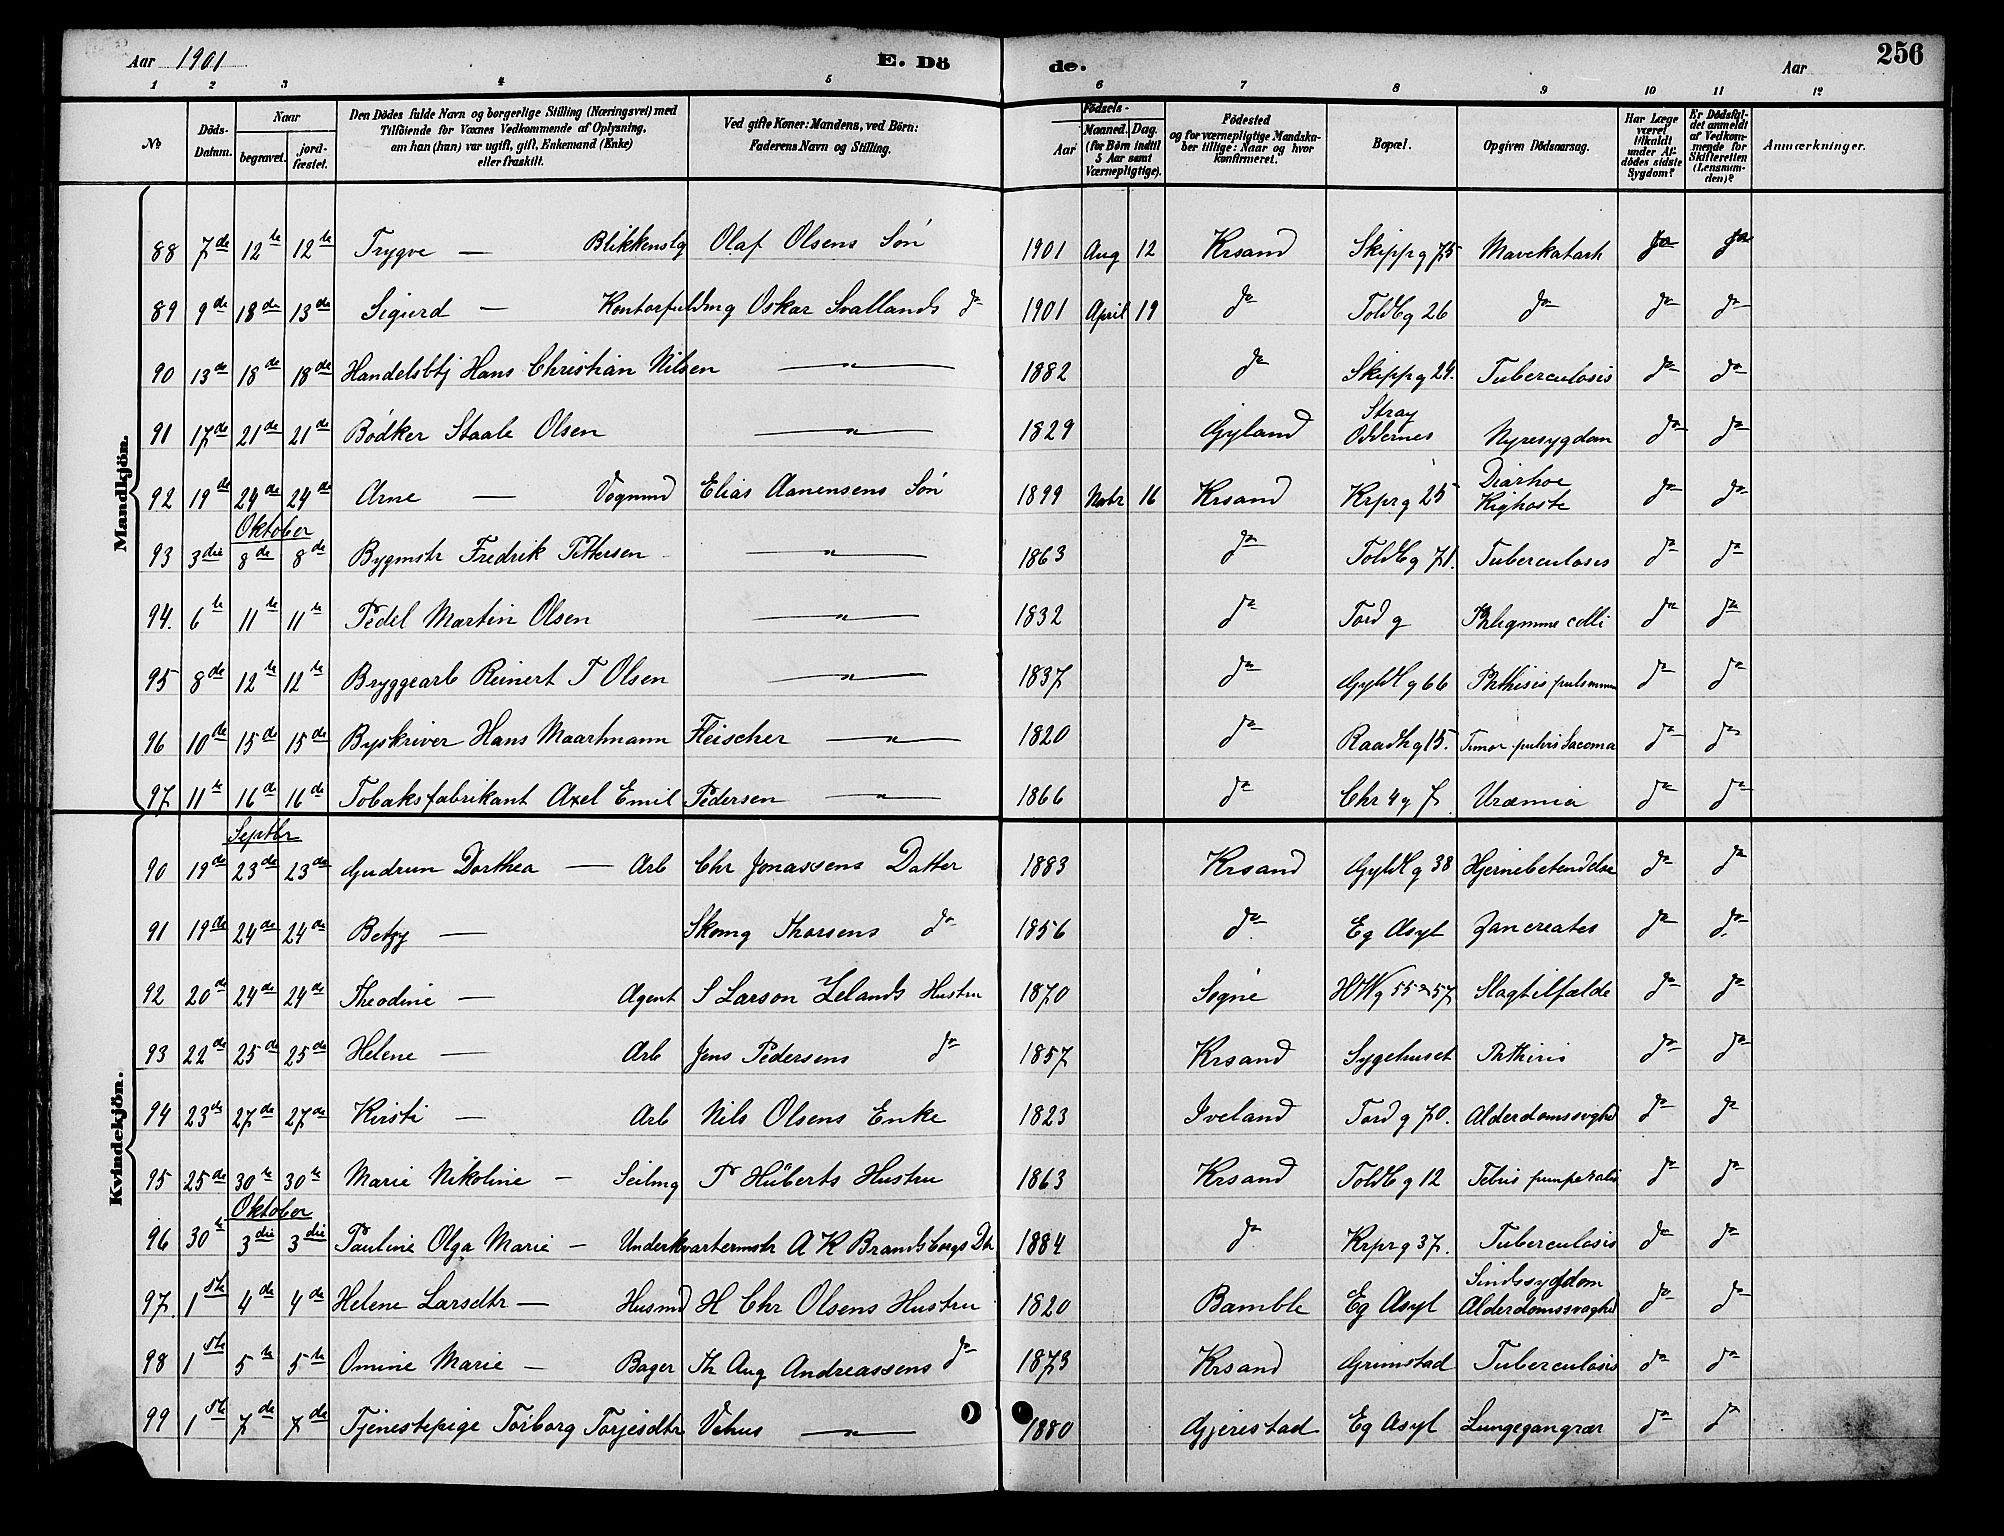 Aar 1901 E. Dö de. Aar 256
1 2 3 4 5 6 7 8 9 10 11 12
No Döds-Datum. Naar begravet. jordfæstet. Den Dödes fulde Navn og borgerlige Stilling (Næringsvei) med Tilföiende for Voxnes Vedkommende af Oplysning, om han (hun) var ugift, gift, Enkemand (Enke) eller fraskilt. Ved gifte Koner: Mandens, ved Börn: Faderens Navn og Stilling. Födsels- Aar Maaned. Dag. (for Börn indtil 5 Aar samt Værnepligtige). Födested og for værnepligtige Mandskaber tillige: Naar og hvor konfirmeret. Bopæl. Opgiven Dödsaarsag. Har Læge været tilkaldt under Afdödes sidste Sygdom? Er Dödsfaldet anmeldt af Vedkommende for Skifteretten (Lensmanden)? Anmærkninger.
Mandkjön.
88 7de 12te 12te Trygve — Blikkenslg Olaf Olsens Sön 1901 Aug 12 Krsand Skippg 75 Mavekatarh Ja Ja
89 9de 18de 13de Sigurd — Kontorfuldmg Oskar Svallands do 1901 April 19 do Toldbg 26 do do do
90 13de 18de 18de Handelsbtj Hans Christian Nilsen — " — 1882 do Skippg 24. Tuberculosis do do
91 17de 21de 21de Bödker Staale Olsen — " — 1829 Gyland Stray Oddernes Nyresygdom do do
92 19de 24de 24de Arne — Vognmd Elias Aanensens Sön 1899 Novbr 16 Krsand Krprg 25 Diarhoe Kighoste do do
Oktober
93 3die 8de 8de Bygmstr Fredrik Pettersen — " — 1863 do Toldbg 71. Tuberculosis do do
94. 6te 11te 11te Pedel Martin Olsen — " — 1832 do Tord g Phlegmone colli do do
95 8de 12te 12te Bryggearb Reinert T Olsen — " — 1837 do Gyldl g 66 Phthisis pulsmnum do do
96 10de 15de 15de Byskriver Hans Maartmann Fleischer — " — 1820 do Raadhg 15. Tumor pelvis Sacoma do do
97 11te 16de 16de Tobaksfabrikant Axel Emil Pedersen — " — 1866 do Chr 4 g 7 Uræmia do do
Kvindekjön.
Septbr
90 19de 23de 23de Gudrun Dorthea — Arb Chr Jonassens Datter 1883 Krsand Gyldl g 38 Hjernebetendelse do do
91 19de 24de 24de Betzy — Skomg Thorsens do 1856 do Eg Asyl do do
92 20de 24de 24de Theodine — Agent S Larson Lelands Hustru 1870 Sögne HWg 55 & 57 Slagtilfælde do do
93 22de 25de 25de Helene — Arb Jens Pedersens do 1857 Krsand Sygehuset Phthisis do do
94 23de 27de 27de Kirsti — Arb Nils Olsens Enke 1823 Iveland Tord g 70. Alderdomssvaghed do do
95 25de 30te 30te Marie Nikoline — Seilmg P Hüberts Hustru 1863 Krsand Toldbg 12 Febris puerperalis do do
Oktober
96 30te 3die 3die Pauline Olga Marie — Underkvartermstr A K Bramsborgs Dtr 1884 do Krprg 37. Tuberculosis do do
97. 1ste 4de 4de Helene Larsdtr — Husmd H Chr Olsens Hustru 1820 Bamble Eg Asyl Sindssygdom Alderdomssvaghed do do
98 1ste 5te 5te Omine Marie — Bager Th Aug Andreassens do 1873 Krsand Grimstad Tuberculosis do do
99 1ste 7de 7de Tjenestepige Torborg Torjesdtr Vehus — " — 1880 Gjerestad Eg Asyl Lungegangræn do do